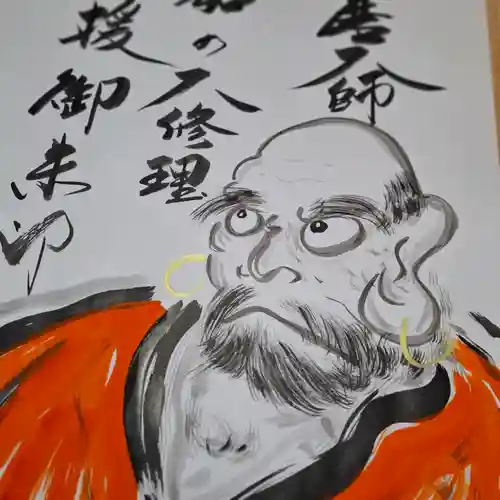 磨大師
の大修理
援御朱印